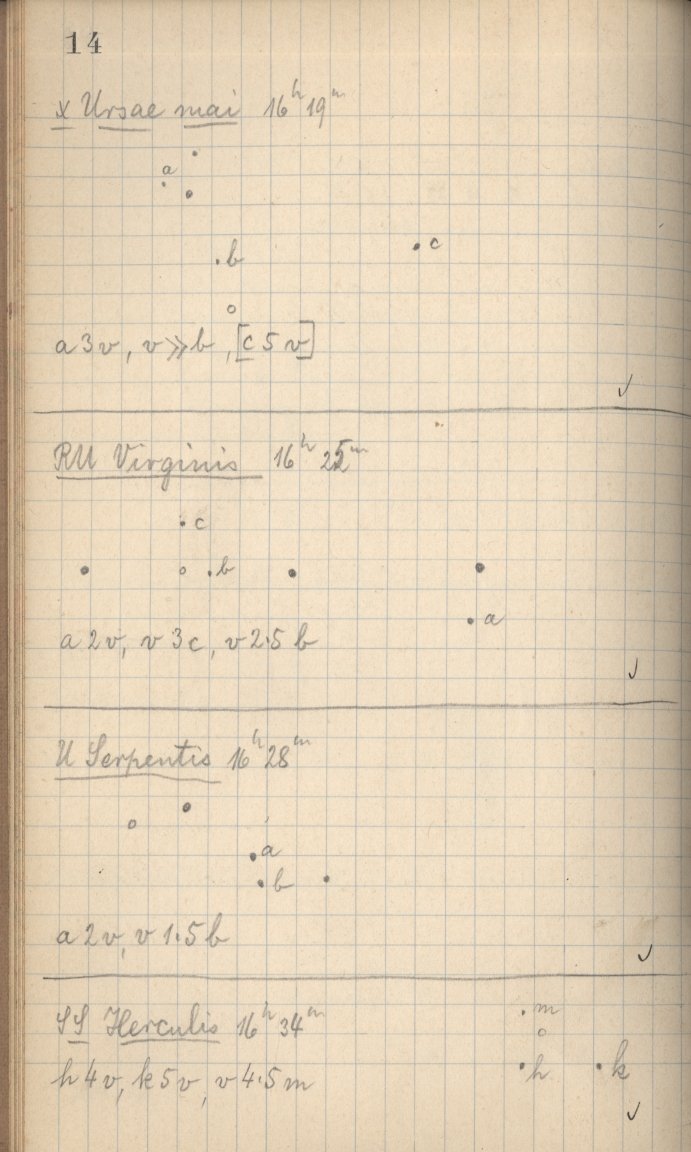 14
X Ursae mai 16h 19m
a
b
c
a 3 v, v >> b, [c 5 v]
RU Virginis 16h 25m
c
b
a
a 2 v, v 3 c, v 2.5 b
U Serpentis 16h 28m
a
b
a 2 v, v 1.5 b
SS Herculis 16h 34m
m
h
k
h 4 v, k 5 v, v 4.5 m